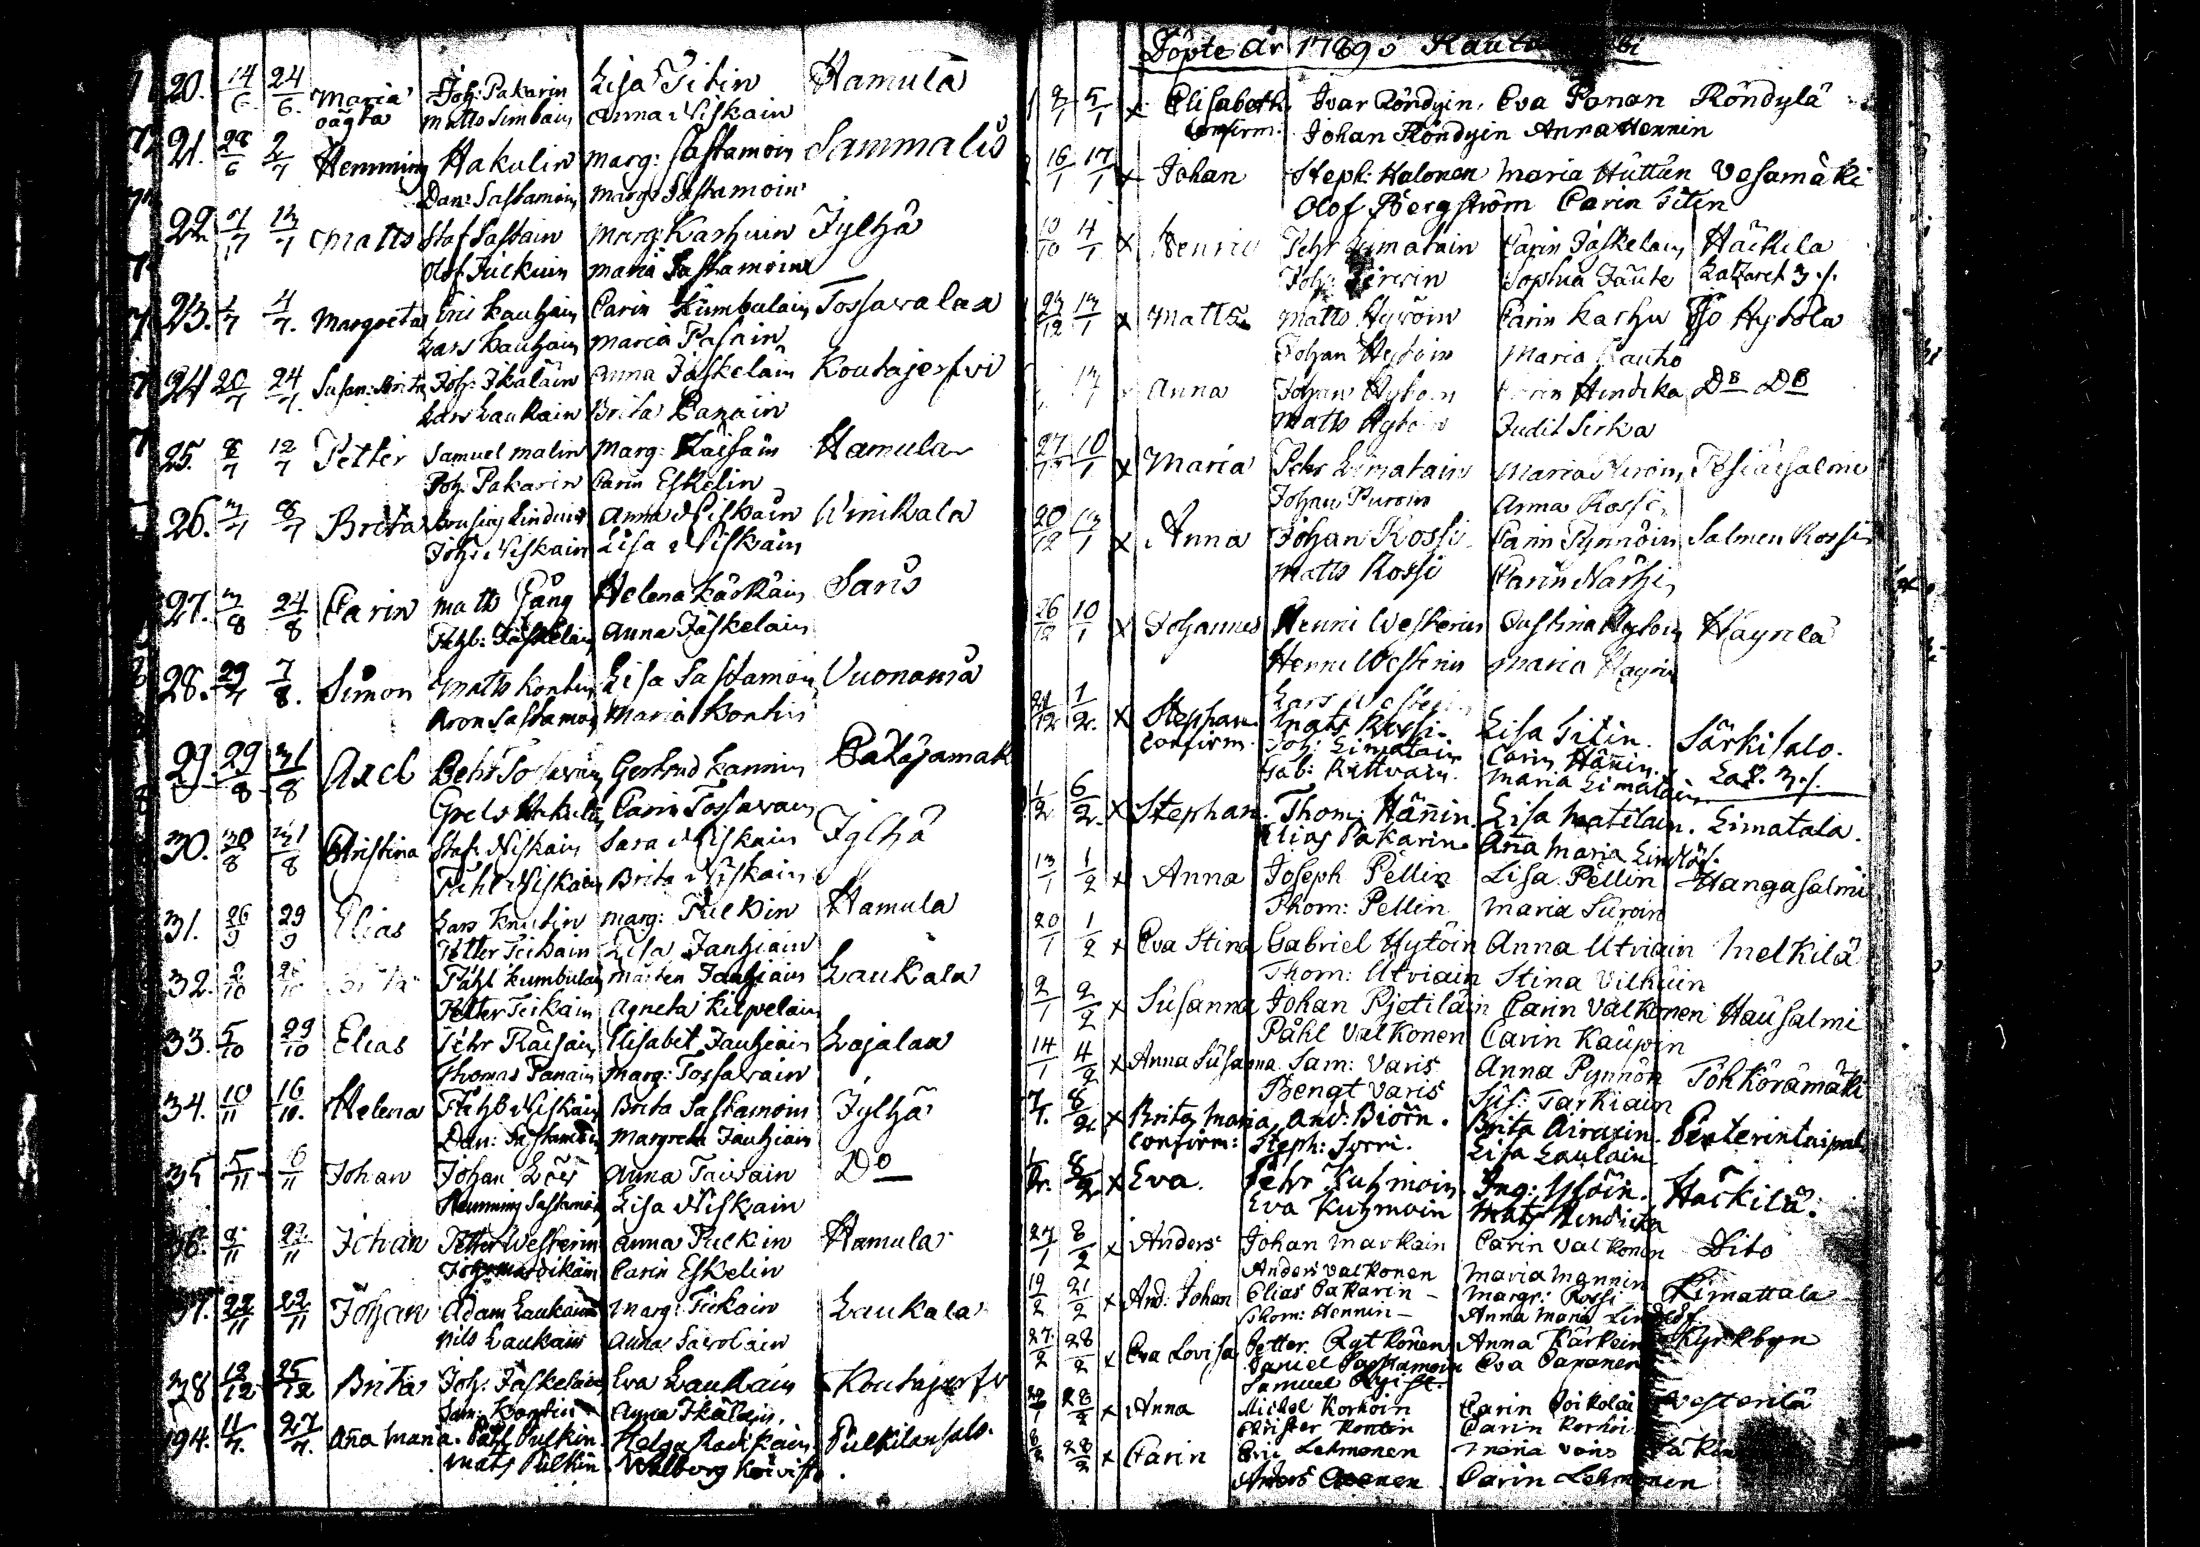 20. 14/6 24/6 Maria Joh: Pakarin Lisa Titin Hamula
oägta Matts Simbain Anna Niskain
21. 28/6 2/7 Hemming Hakulin Marg: Sastamoin Sammalis
Dan: Sastamoin Marg: Sastamoin
22. 12/7 Matts Staf Sastain Marg: Karhuin Jylhä
Olof Julkuin Maria Sastamoin
23. 4/7 Margreta Eric Kauhain Carin Kumbulain Tossavalax
Lars Kauhain Maria Pasain
24 20/7 24/7 Susan: Brita Joh: Ikäläin Anna Jäskelain Koutajerfvi
Lars Laukain Brita Panain
25. 8/7 12/7 Petter Samuel Malin Marg: Räisäin Hamula
Joh. Pakarin Carin Eskelin
26. 3/7 8/7 Brita Anna Niskain Winikala
Joh: Niskain Lisa Niskain
27. 3/8 24/8 Carin Matts Gång Helena Käckäin Saris
Påhl: Jäskelain Anna Jäskelain
28. 29/7 7/8. Simon Matts Kontin Lisa Sastamoin Vuonama
Aron Sastamoin Maria Kontin
29. 29/8 31/8 Axel Pehr Tossavain Gertrud Kannin
Grels Hakulin Carin Tossavain
30. 30/8 31/8 Christina Staf: Niskain Sara Niskain Jylhä
Påhl Niskain Brita Niskain
31. 26/9 29/9 Elias Lars Knutin Marg: Pulkin Hamula
Petter Teikain Lisa Jauhiain
32. 2/10 Påhl Kumbulain Marten Jauhiain Laukala
Petter Teikain Agneta Kilpelain
33. 5/10 29/10 Elias Pehr Räisain Elisabet Jauhiain Lajalax
Thomas Panain Marg: Tossavain
34. 10/11 16/11. Helena Påhl Niskain Brita Sastamoin Jylhä
Dan: Sastamoin Margreta Jauhiain
35 5/11 6/11 Johan Johan Löes Anna Taivain Do
Hemming Sastamoin Lisa Niskain
36. 9/11 22/11 Johan Petter Westerin Anna Pulkin Hamula
Carin Eskelin
37. 22/11 22/11 Johan Adam Laukain Marg: Teikain Laukala
Nils Laukain Anna Savolain
38 12/12 25/12 Brita Joh: Jäskelain Eva Laukain Koutajerfv
Sam: Kontin Anna Ikäläin.
194. 11/7. 27/7. Aña Maria. Påhl Pulkin. Helga Räsikäin. Pulkilansalo.
Mats Pulkin. Walborg Koivisto.
Döpte År 1789 i Raut
2/1 5/1 x Elisabeth Ivar Röndyin, Eva Panan Röndylä
Confirm. Johan Röndyin Anna Hennin
16/1 17/1 x Johan Steph: Halonen Maria Hüttün Vesamäki
Olof Bergström Carin Titen
4/1 x Henric Pehr Limatain Carin Jäskelain Häckila
Sophia Jäute Lazaret 3./.
23/12 13/1 x Matts Matts Hytöin Carin Karhu Hytölä
Johan Hytöin Maria Rautio
13/1 Anna Johan Hytöin Carin Hindika Do Do
Matts Hytöin Judit Sirka
27/12 10/1 x Maria Pehr Limatain Maria Puroin Pesiäisalmi
Johan Puroin Anna Rossi
20/12 13/1 x Anna Johan Rossi Carin Pynnöin Salmen Rossi
Matts Rossi Carin Närhi
26/12 10/1 x Johannes Henric Westerin Justina Hytöin Haynlä
Henric Westerin Maria Haynin
21/12 1/2. x Stephan Mats Rossi. Lisa Titin. Särkisalo.
Confirm. Joh: Limatain Carin Häñin. Laz. 3./.
Gab: Rittvain. Maria Limatain
1/2 6/2. x Stephan. Thom: Häñin. Lisa Matilain. Limatala.
Elias Pakarin. Aña Maria Lindlöf.
13/1 1/2 x Anna Joseph Pellin Lisa Pellin Hangasalmi
Thom: Pellin Maria Süroin
20/1 1/2 x Eva Stina Gabriel Hytöin Anna Utriain Melkilä
Thom: Utriain Stina Vilhüin
2/1 2/2 x Susanna Johan Pjetiläin Carin Valkonen Hausalmi
Påhl Valkonen Carin Kaupin
14/1 4/2 x Anna Süsanna Sam: Varis Anna Pynnön Tohkörämäki
Bengt Varis Süs: Tarkiain
7/1. 8/2 x Brita Maria And: Biörn. Brita Airaxin. Penterintaipal
Confirm: Steph: Sorri. Lisa Laulain
1/2. 8/2 x Eva. Pehr Kuhmoin. Ing: Ylöin. Häckilä.
Eva Kuhmoin Mats Hindicka
27/1 8/2 x Anders Johan Markain Carin Valkonen Dito
Anders Valkonen Maria Mannin
19/2 21/2 x And: Johan Elias Pakarin - Margr: Rossi Limattala
Thom: Hennin - Anna Maria Lindlöf
27/2 28/2 x Eva Lovisa Petter Rytkönen Anna Kärkein Kyrkbyn
Daniel Sastamoin Eva Papanen
Samuel
28/2 x Anna Michel Korhoin Carin Voikolai Vesterilä
Christer Kontin Carin Korhoi
8/2 28/2 x Carin Eric Lehmonen Maria Varis
Carin Lehmonen